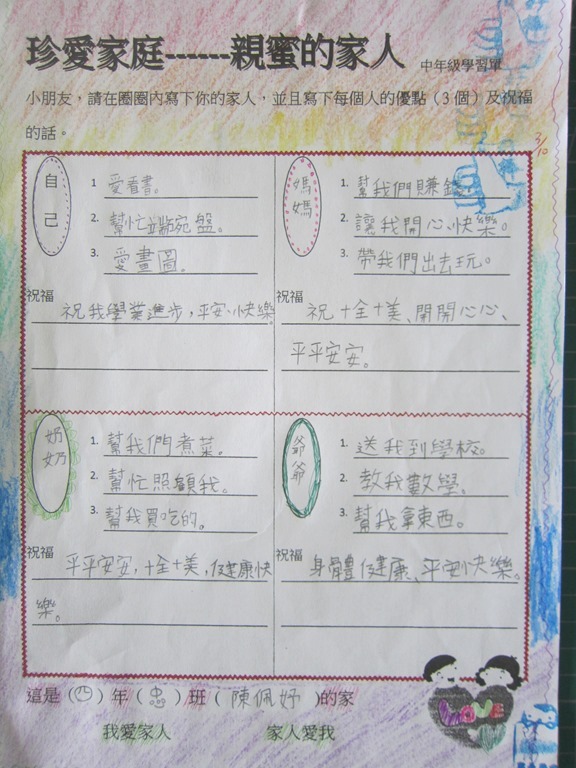 珍愛家庭------親蜜的家人 中年級學習單
小朋友，請在圈圈內寫下你的家人，並且寫下每個人的優點（3 個）及祝福
的話。
2/10
自己
1 愛看書。
2. 幫忙端碗盤。
3. 愛畫圖。
祝福 祝我學業進步，平安、快樂。
媽媽
1. 幫我們賺錢。
2. 讓我開心、快樂。
3. 帶我們出去玩。
祝福 祝十全十美、開開心心、
平平安安。
奶奶
1. 幫我們煮菜。
2. 幫忙照顧我。
3. 幫我買吃的。
祝福 平平安安，十全十美，健康快
樂。
爺爺
1. 送我到學校。
2. 教我數學。
3. 幫我拿東西。
祝福 身體健康、平安快樂。
這是（四）年（忠）班（陳佩妤）的家
我愛家人 家人愛我
LOVE